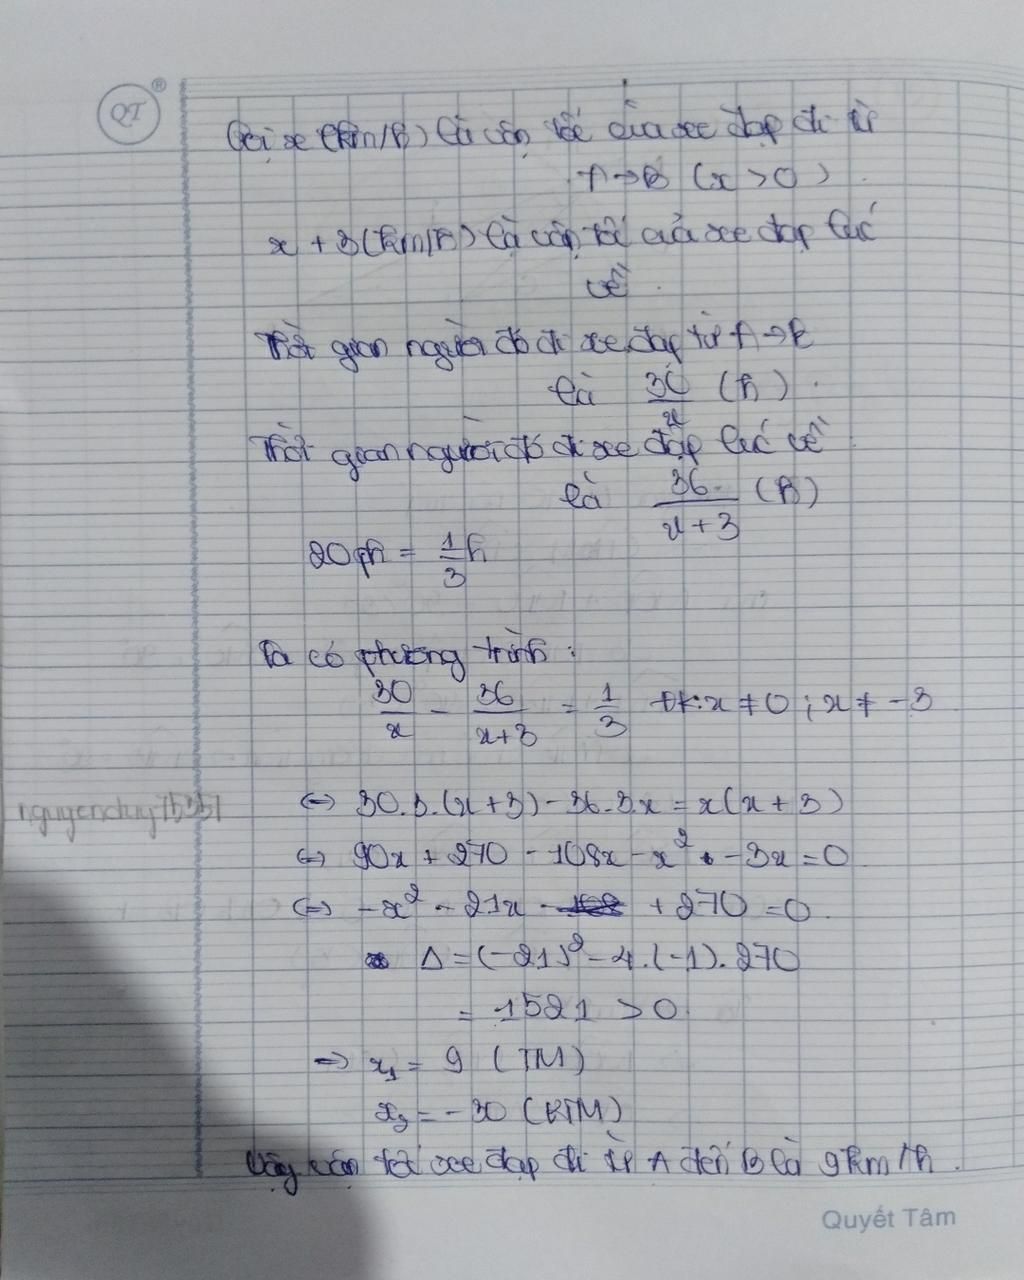 QT ®
Gọi x (km/h) là vận tốc của xe đạp đi từ
A→B (x > 0).
x + 3 (km/h) là vận tốc của xe đạp lúc
về.
Thời gian người đó đi xe đạp từ A→B
là 30/x (h).
Thời gian người đó đi xe đạp lúc về
là 36/(x+3) (h)
20ph = 1/3 h
Ta có phương trình:
30/x - 36/(x+3) = 1/3 ĐK: x ≠ 0 ; x ≠ -3
⇔ 30.3.(x+3) - 36.3.x = x(x+3)
nguyenduy75351
⇔ 90x + 270 - 108x - x² - 3x = 0
⇔ -x² - 21x + 270 = 0.
Δ = (-21)² - 4.(-1).270
= 1521 > 0
⇒ x₁ = 9 (TM)
x₂ = -30 (KTM)
Vậy vận tốc xe đạp đi từ A đến B là 9km/h.
Quyết Tâm